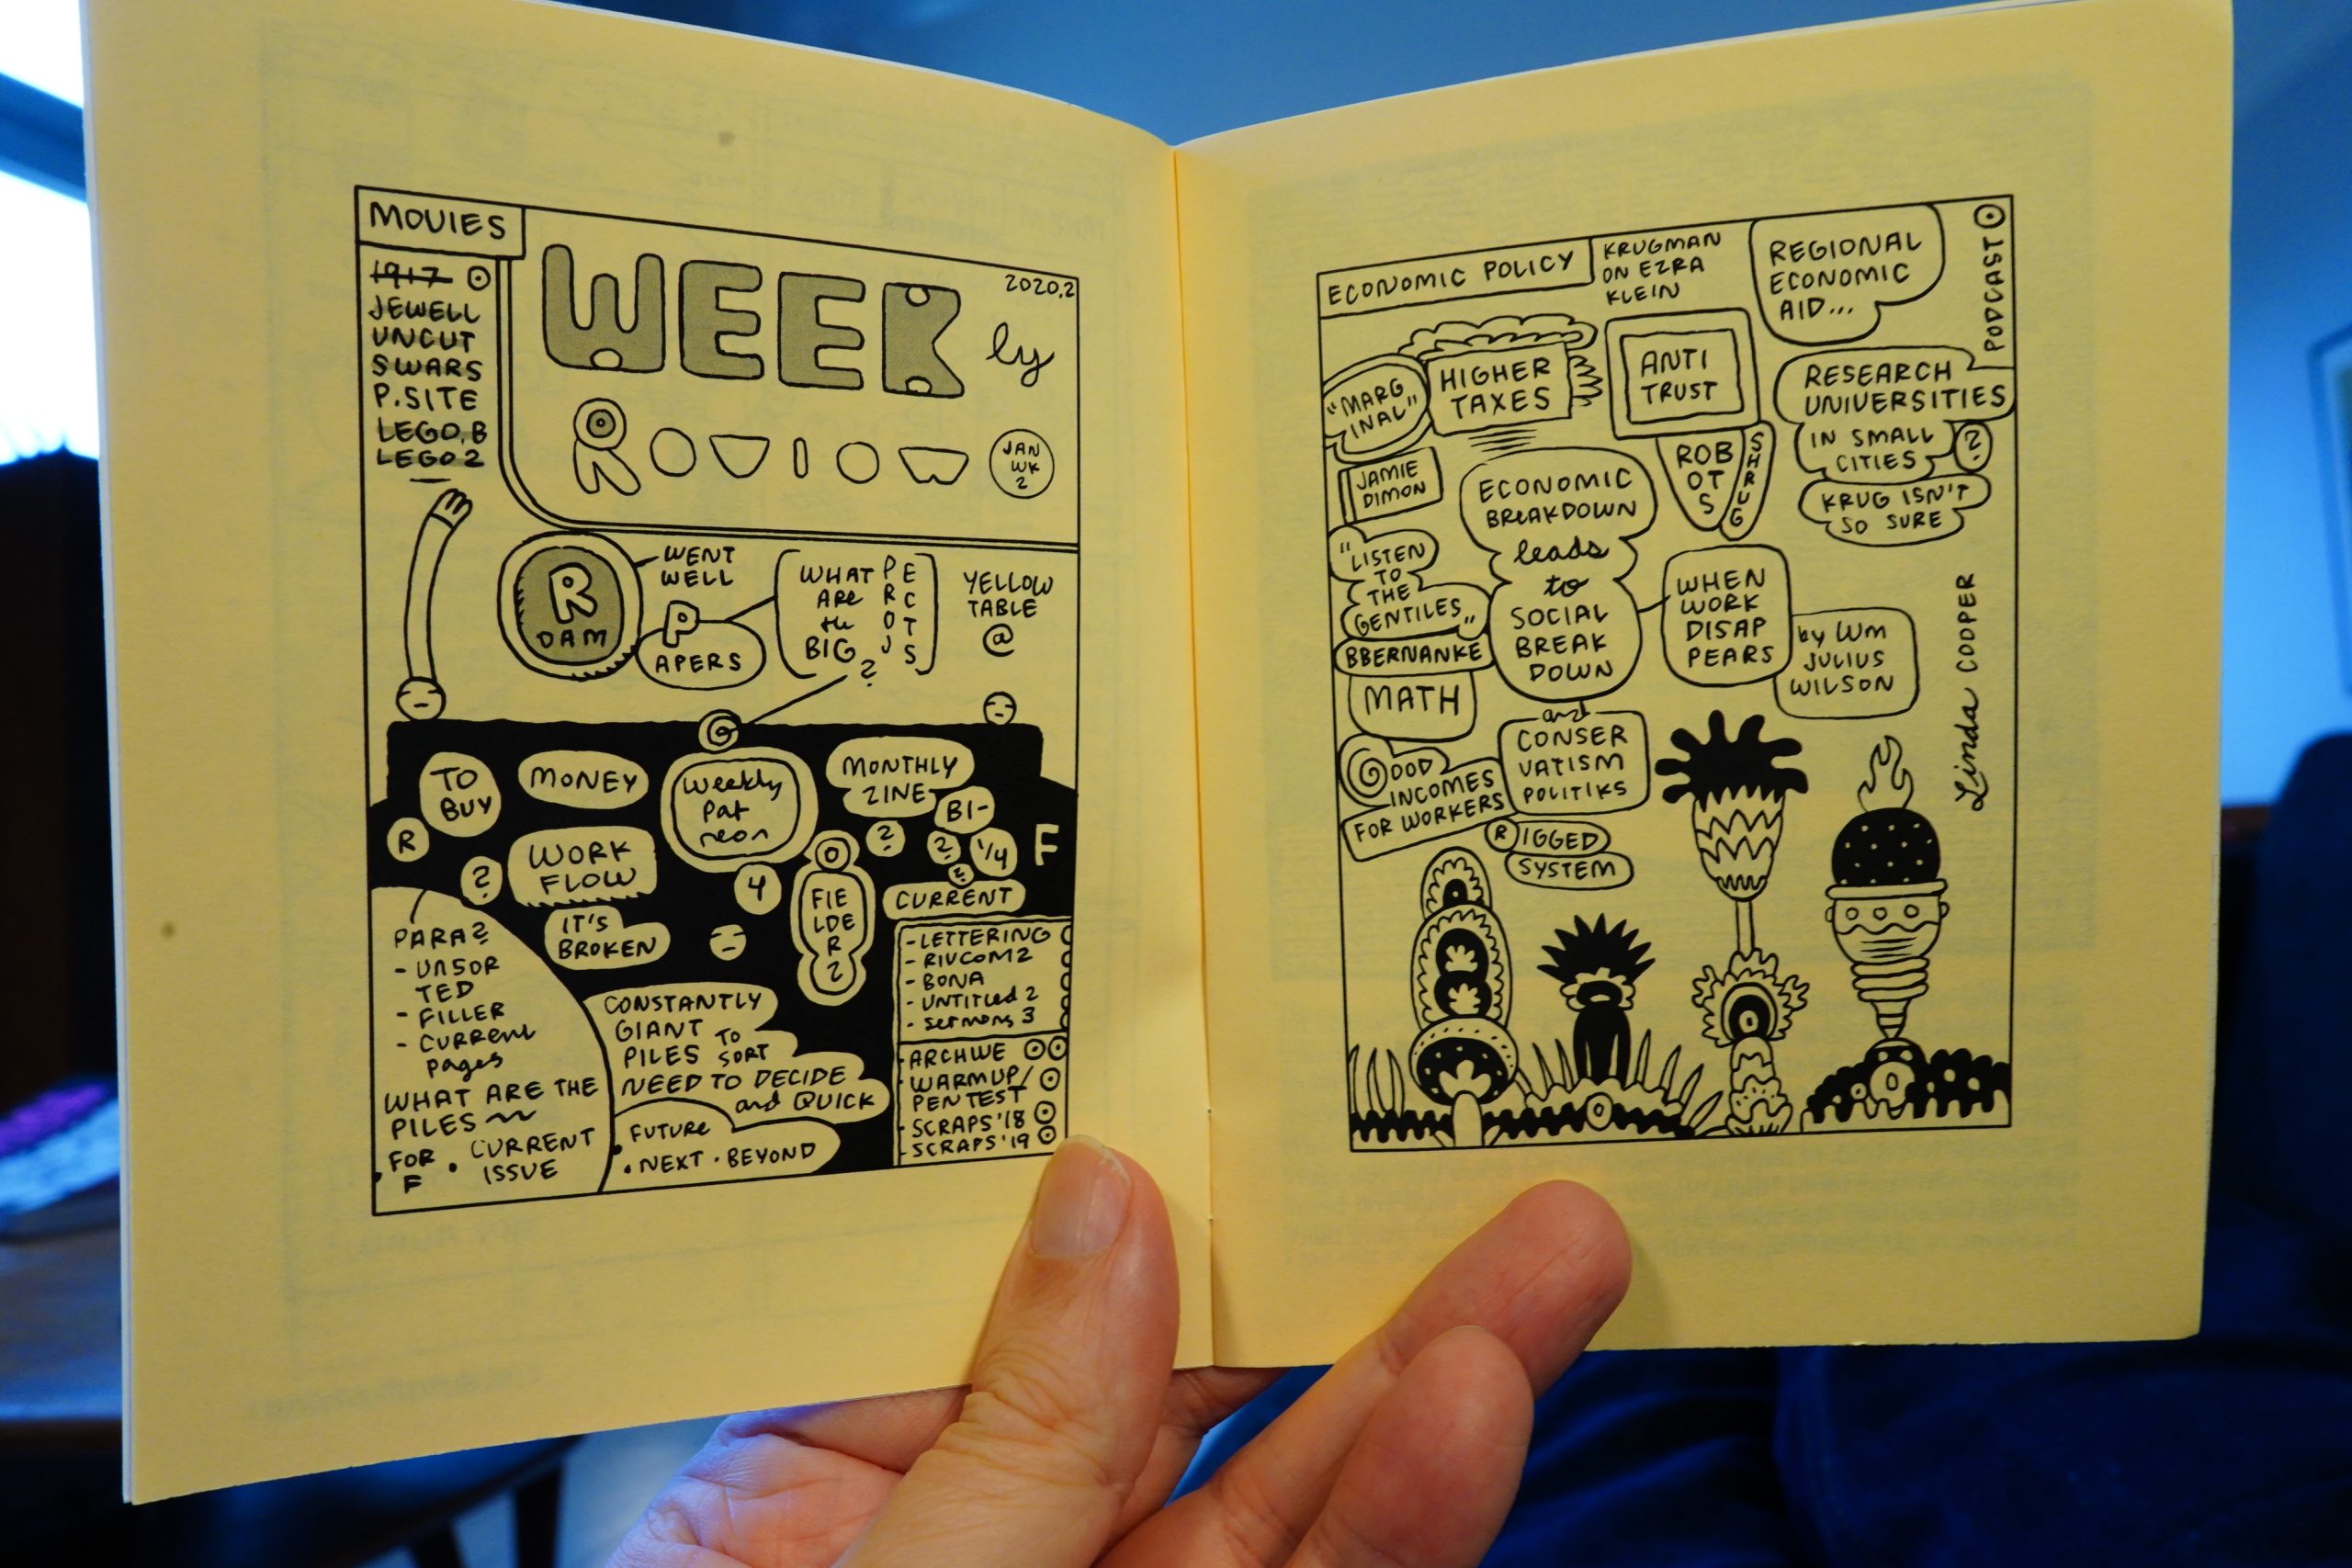 MOVIES
1917
JEWELL
UNCUT
SWARS
P.SITE
LEGO.B
LEGO 2
WEEK
ly
2020.2
REVIEW
JAN
WK
2
R
DAM
WENT
WELL
P
APERS
WHAT
ARE
the
BIG
PROJ
ECTS
?
YELLOW
TABLE
@
TO
BUY
MONEY
G
Weekly
Pat
reon
MONTHLY
ZINE
?
BI-
?
1/4
?
F
R
?
WORK
FLOW
IT'S
BROKEN
4
O
FIE
LDE
R
2
CURRENT
- LETTERING
- RIVCOM 2
- BONA
- UNTITLED 2
- SERMONS 3
- ARCHIVE
- WARMUP/
PENTEST
- SCRAPS '18
- SCRAPS '19
PARA?
- UNSOR
TED
- FILLER
- CURRENT
pages
WHAT ARE THE
PILES
• FOR
F
• CURRENT
ISSUE
CONSTANTLY
GIANT
PILES TO
SORT
NEED TO DECIDE
and QUICK
FUTURE
• NEXT • BEYOND
ECONOMIC POLICY
KRUGMAN
ON EZRA
KLEIN
REGIONAL
ECONOMIC
AID...
PODCAST
"MARG
INAL"
HIGHER
TAXES
ANTI
TRUST
RESEARCH
UNIVERSITIES
IN SMALL
CITIES
?
KRUG ISN'T
SO SURE
JAMIE
DIMON
ROB
OT
S
SHRUG
ECONOMIC
BREAKDOWN
leads
to
SOCIAL
BREAK
DOWN
"LISTEN
TO
THE
GENTILES"
BBERNANKE
MATH
WHEN
WORK
DISAP
PEARS
by Wm
JULIUS
WILSON
Linda COOPER
and
CONSER
VATISM
POLITIKS
GOOD
INCOMES
FOR WORKERS
RIGGED
SYSTEM